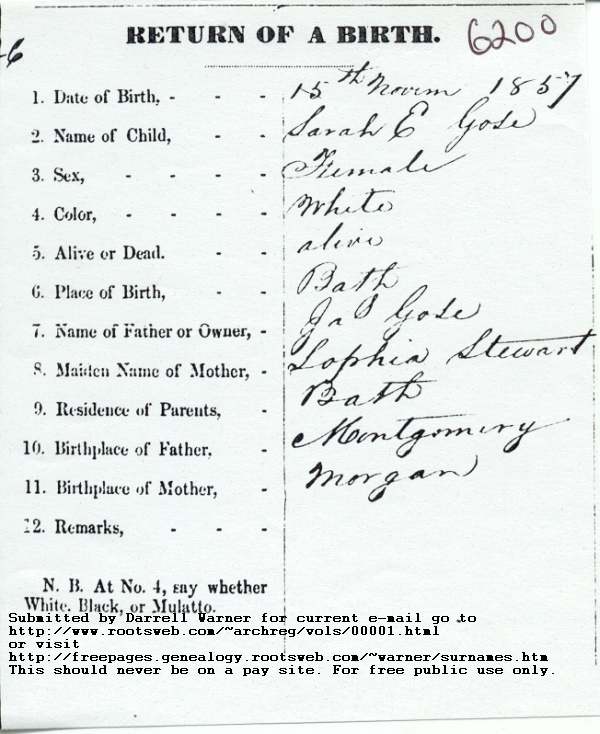 RETURN OF A BIRTH. 6200
6
1. Date of Birth, - - - 15th Novem 1857
2. Name of Child, - - Sarah E Gose
3. Sex, - - - - Female
4. Color, - - - - White
5. Alive or Dead. - - alive
6. Place of Birth, - - Bath
7. Name of Father or Owner, - Ja S Gose
8. Maiden Name of Mother, - Sophia Stewart
9. Residence of Parents, - Bath
10. Birthplace of Father, - Montgomery
11. Birthplace of Mother, - Morgan
12. Remarks, - - -
N. B. At No. 4, say whether
White, Black, or Mulatto.
Submitted by Darrell Warner for current e-mail go to
http://www.rootsweb.com/~archreg/vols/00001.html
or visit
http://freepages.genealogy.rootsweb.com/~warner/surnames.htm
This should never be on a pay site. For free public use only.